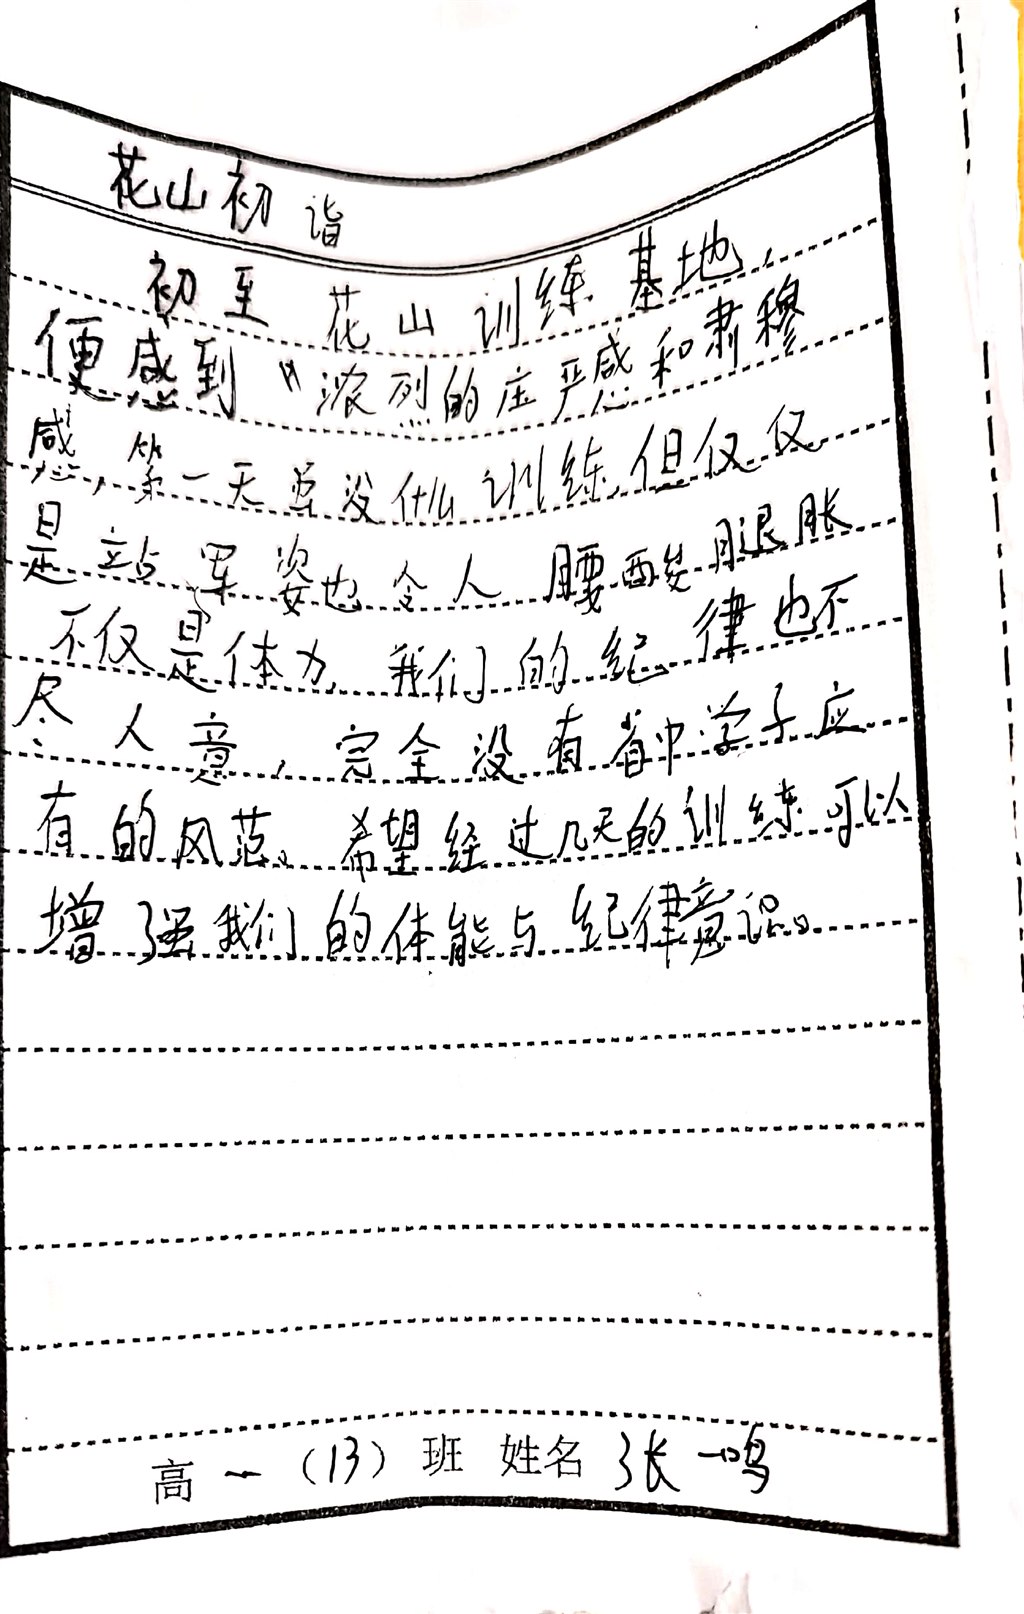 花山初诣
初至花山训练基地,
便感到"浓烈的庄严感和肃穆
感,第一天虽没什么训练,但仅仅
是站军姿也令人腰酸腿胀
不仅是体力,我们的纪律也不
尽人意,完全没有省中学子应
有的风范。希望经过几天的训练可以
增强我们的体能与纪律意识。
高一(13)班 姓名 张一鸣